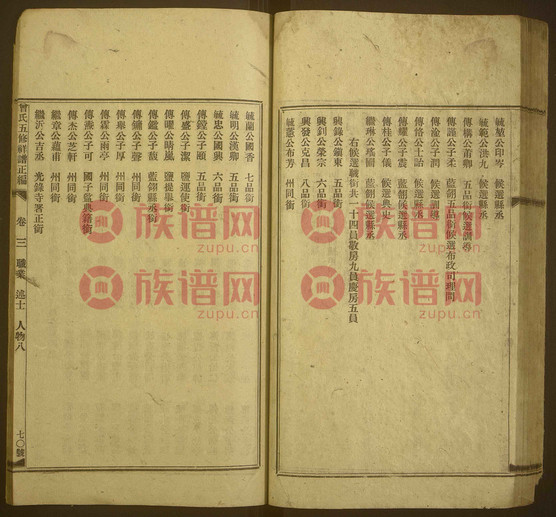 毓堃公印岑 候選縣丞
毓範公洪九 候選縣丞
傳構公莆卿 五品銜候選訓導
傳謹公子柔 藍翎五品銜候選布政司理問
傳淦公子潤 候選訓導
傳恪公士話 候選縣丞
傳耀公子震 藍翎候選縣丞
傳桂公子儀 候選典史
繼琳公瑤圃 藍翎候選縣丞
右候選職銜共一十四員敬房九員慶房五員
興錄公錦東 五品銜
興釗公榮宗 六品銜
興發公克昌 八品銜
毓蔥公布芳 州同銜
毓蘭公國香 七品銜
毓明公漢卿 五品銜
毓忠公國興 六品銜
傳鏜公子頤 五品銜
傳盛公子潔 鹽運使銜
傳曜公晴嵐 鹽提舉銜
傳鑑公子馥 藍翎縣丞銜
傳鏞公子聲 州同銜
傳舉公子厚 州同銜
傳霖公雨亭 州同銜
傳燾公子可 國子監典簿銜
傳杰公芝軒 州同銜
繼章公蘊甫 州同銜
繼沂公吉丞 光錄寺署正銜
曾氏五修族譜正編 卷三 職業 述士 人物八 七〇號
族谱网
zupu.cn
族谱网
zupu.cn
族谱网
zupu.cn
族谱网
zupu.cn